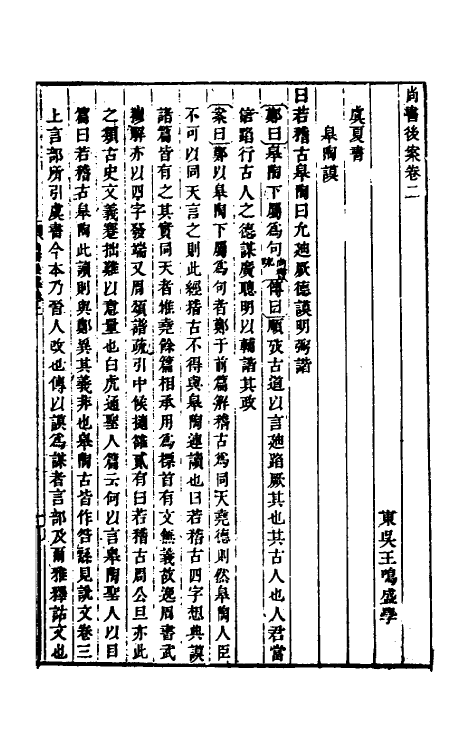 尚書後案卷二
東吳王鳴盛學
虞夏書
皋陶謨
曰若稽古皋陶曰允迪厥德謨明弼諧
鄭曰皋陶下屬爲句 傳曰順攷古道以言迪蹈厥其也其古人也人君當
信蹈行古人之德謀廣聰明以輔諧其政
案曰鄭以皋陶下屬爲句者鄭于前篇解稽古爲同天堯德則然皋陶人臣
不可以同天言之則此經稽古不得與皋陶連讀也曰若稽古四字想典謨
諸篇皆有之其實同天者惟堯餘篇相承用爲標首有文無義故逸周書武
穆解亦以四字發端又周頌諧疏引中候擿雒貳有曰若稽古周公旦亦此
之類古史文義蹇拙難以意量也白虎通聖人篇云何以言皋陶聖人以目
篇曰若稽古皋陶此讀則與鄭異其義非也皋陶古皆作咎繇見說文卷三
上言部所引虞書今本乃晉人改也傳以謨爲謀者言部及爾雅釋詁文也